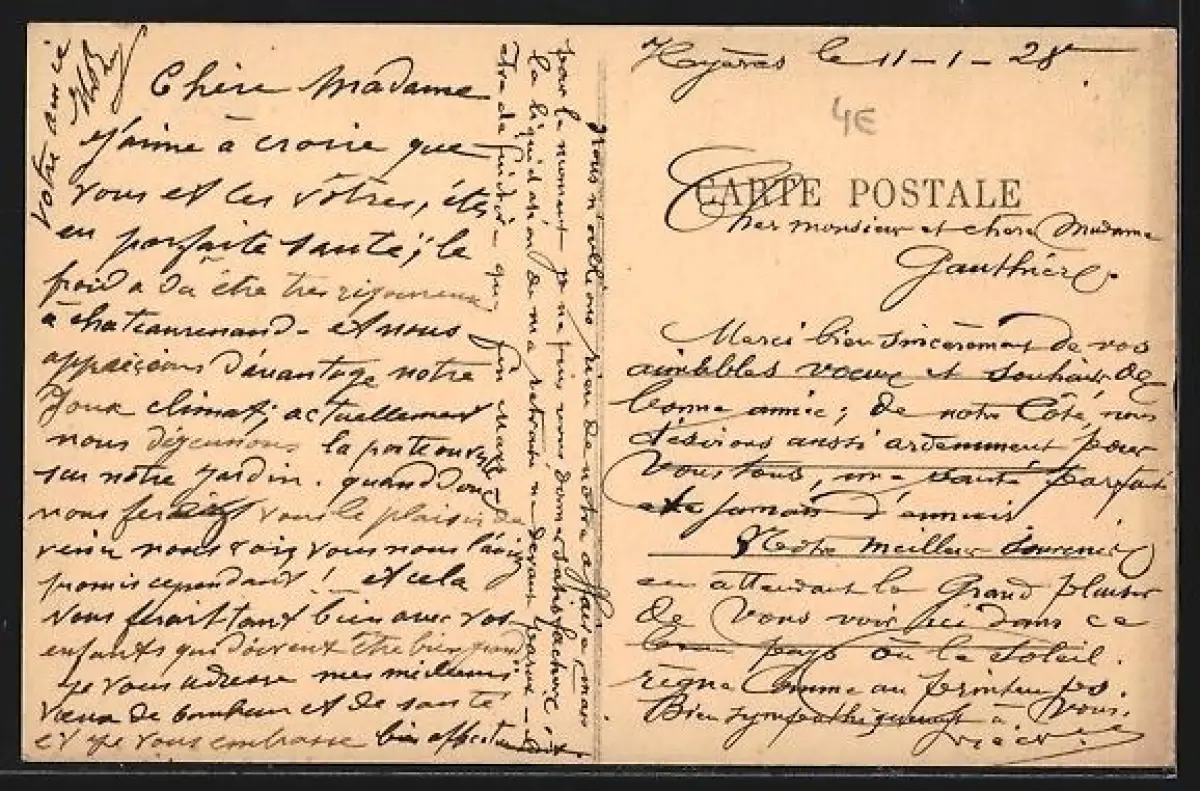 Chère Madame
J'aime à croire que
vous et les vôtres, êtes
en parfaite santé; le
froid a dû être très rigoureux
à chateaurenard. et nous
apprécions d'avantage notre
doux climat; actuellement
nous déjeunons la porte ouverte
sur notre jardin. quand donc
nous ferez vous le plaisir de
venir nous voir, vous nous l'aviez
promis cependant! et cela
vous ferait tant bien avec vos
enfants qui doivent être bien grands
je vous adresse mes meilleurs
vœux de bonheur et de santé
et je vous embrasse bien affectueusement
votre amie
Nous n'oublions rien de notre affaire mais
pour le moment je ne puis vous donner satisfaction,
la liquidation de ma retraite ne devant paraître
être définitive que fin Mars
Hyères le 11-1-28
4E
CARTE POSTALE
Cher monsieur et chère Madame
Gauthier
Merci bien sincèrement de vos
aimables vœux et souhaits de
bonne année; de notre Côté, nous
désirons aussi ardemment pour
Vous tous, une santé parfaite
et jamais d'ennuis
Notre meilleur Souvenir
en attendant le Grand plaisir
de Vous voir ici dans ce
beau pays où le soleil
règne Comme au printemps.
Bien sympathiquement à Vous.